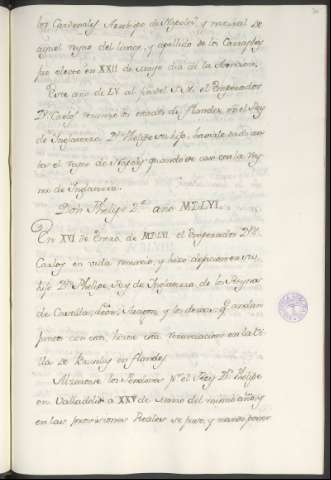 los Cardenales Arzobispo de Napoles, y natural de
aquel reyno del linage, y apellido de los Carrafas,
fue electo en XXII de mayo dia de la Ascension.
Este año de LV al fin del el Emperador
Dn. Carlos renunció los estados de flandes en el Rey
de Inglaterra Dn. Phelipe su hijo, haviale dado an
tes el reyno de Napoles quando se caso con la Rey
na de Inglaterra.
Don Phelipe 2º. año MDLVI.
En XVI de Enero de MDLVI el Emperador Dn.
Carlos en vida renunció, y hizo dejacion en su
hijo Dn. Phelipe Rey de Inglaterra de los Reynos
de Castilla, León, Aragon, y los demas que andan
juntos con esto, hizose esta renunciacion en la Vi
lla de Bruselas en flandes
Alzaronse los Pendones por el Rey Dn. Phelipe
en Valladolid a XXV de marzo del mismo año, y
en las provisiones Reales se puso, y mandó poner